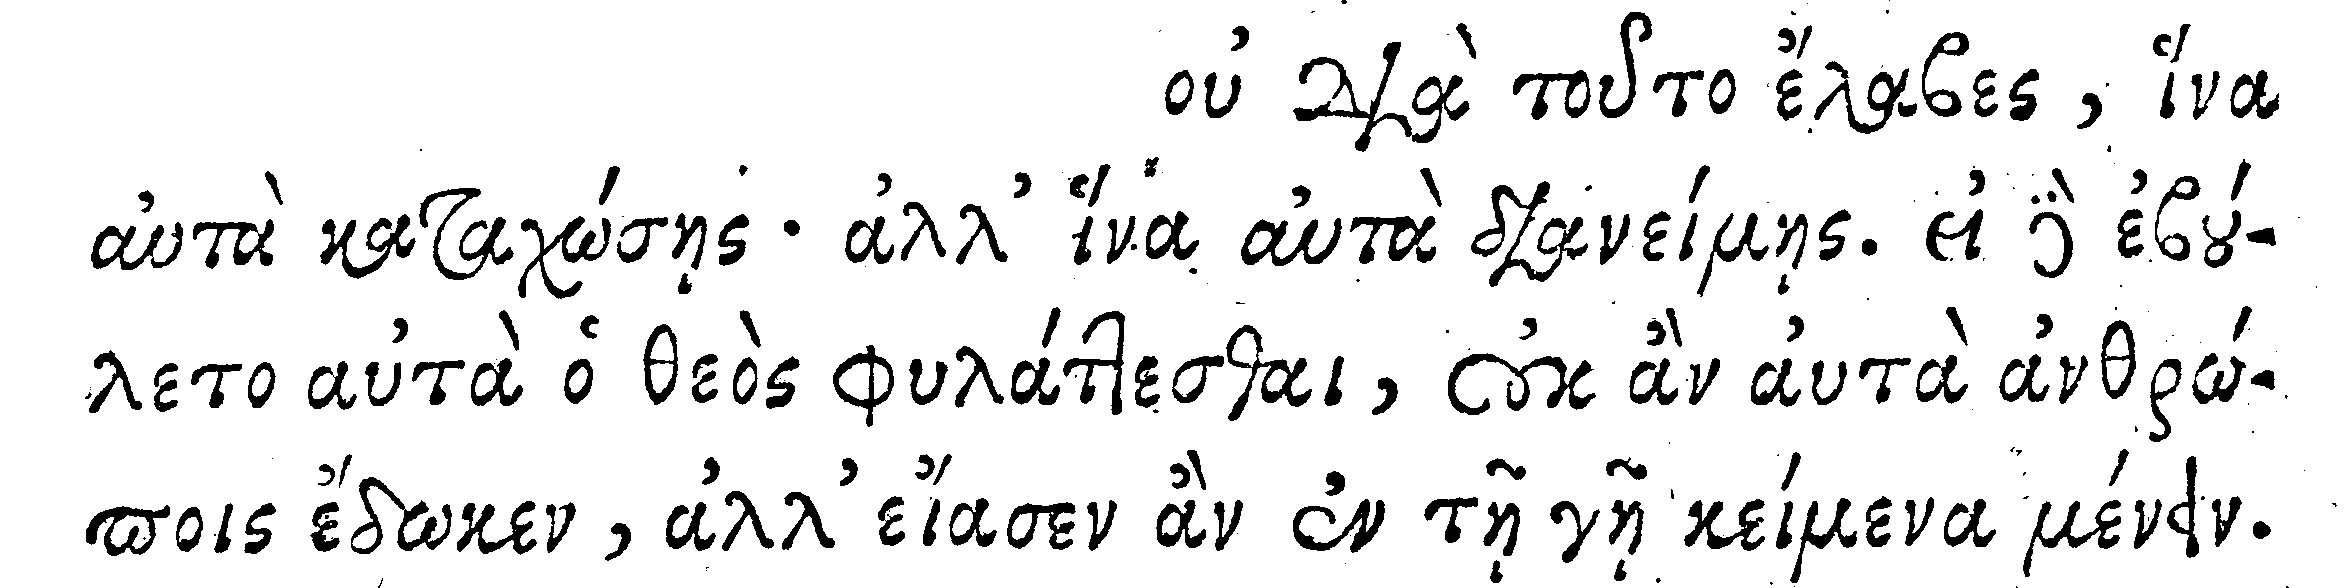 οὐ διὰ τοῦτο ἔλαβες, ἵνα
αὐτὰ καταχώσῃς· ἀλλ' ἵνα αὐτὰ διανείμῃς. εἰ γὰρ ἐβού-
λετο αὐτὰ ὁ θεὸς φυλάττεσθαι, οὐκ ἂν αὐτὰ ἀνθρώ-
ποις ἔδωκεν, ἀλλ' εἴασεν ἂν ἐν τῇ γῇ κείμενα μένειν.